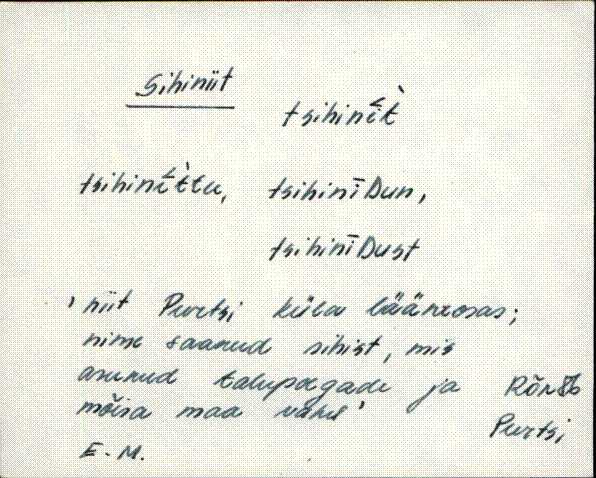 Sihiniit
tsihinī̮t̀
tsihinī̮t̀tu, tsihinīDun,
tsihinīDust
' niit Purtsi küla lääneosas;
nime saanud sihist, mis
asunud talupoegade ja
mõisa maa vahel '
Purtsi
E. M.